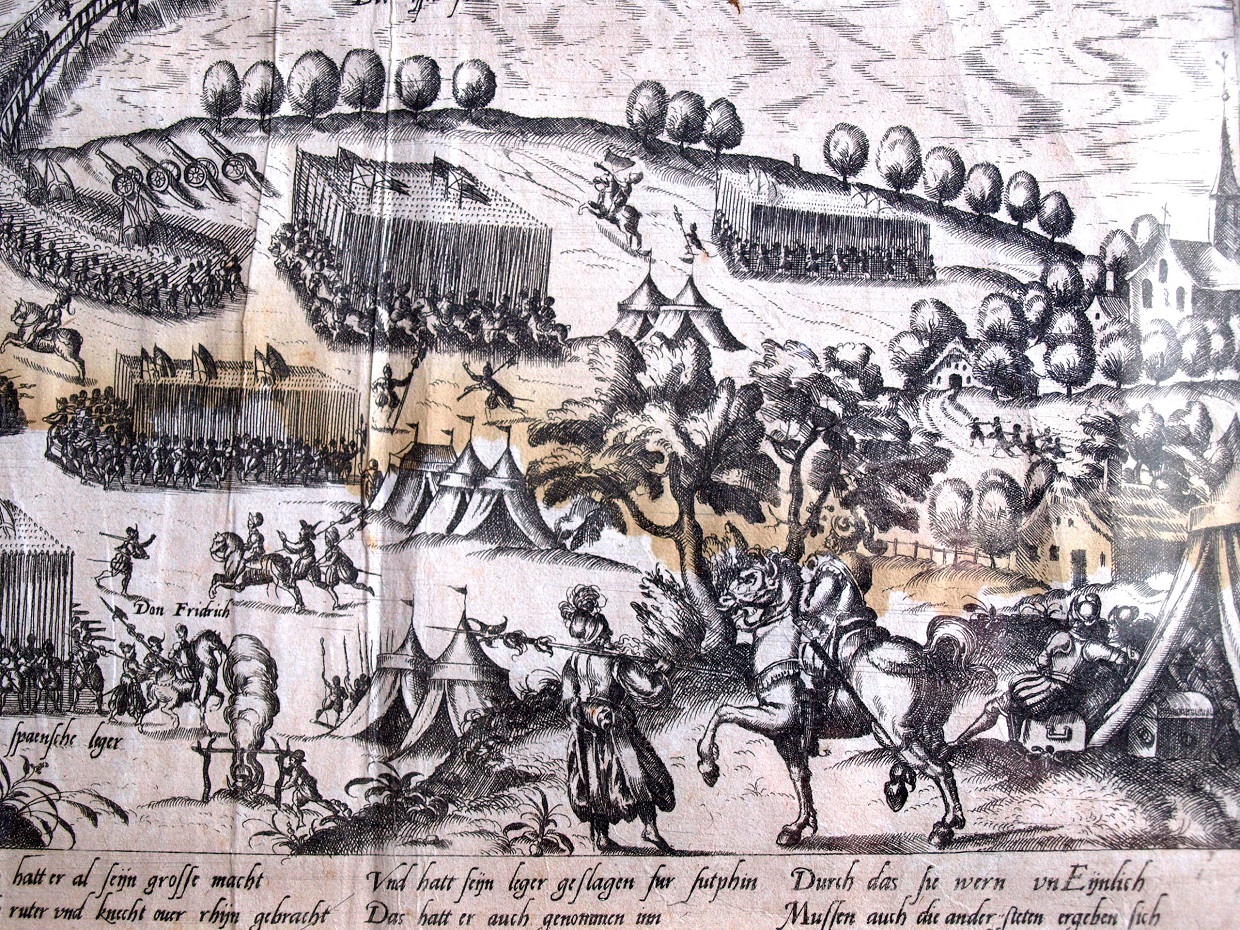 Don Fridrich
spaensche leger
hatt er al seijn grosse macht
ruter vnd knecht ouer rhijn gebracht
Vnd hatt seijn leger geslagen fur sutphin
Das hatt er auch genommen inn
Durch das sie wern vnEijnlich
Mussen auch die ander steten ergeben sich